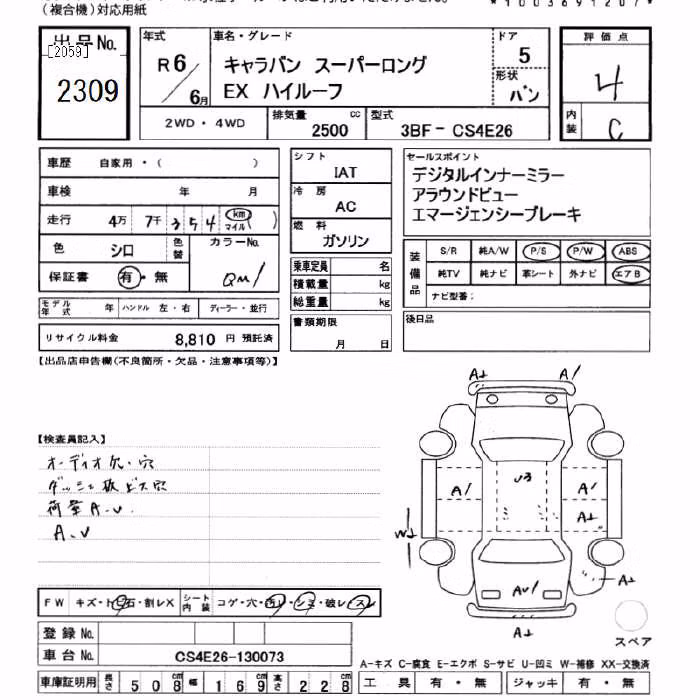 (複合機)対応用紙
*1003691207*
出品No.
[2059]
2309
年式
R6/6月
車名・グレード
キャラバン スーパーロング
EX ハイルーフ
ドア
5
形状
バン
評価点
4
内装
C
2WD・4WD
排気量
2500
cc
型式
3BF-CS4E26
車歴 自家用・( )
車検 年 月
走行 4万 7千 354 km マイル ( )
色 シロ
色替
カラーNo.
QM1
保証書 有・無
モデル年式 年 ハンドル 左・右 ディーラー・並行
リサイクル料金 8,810 円 預託済
シフト
IAT
冷房
AC
燃料
ガソリン
乗車定員 名
積載量 kg
総重量 kg
書類期限
月 日
セールスポイント
デジタルインナーミラー
アラウンドビュー
エマージェンシーブレーキ
装備品
S/R 純A/W P/S P/W ABS
純TV 純ナビ 革シート 外ナビ エアB
ナビ型番:
後日品
【出品店申告欄(不良箇所・欠品・注意事項等)】
【検査員記入】
オーディオ欠・穴
ダッシュ板ビス穴
荷室A.U
A、U
A1
A1
U3
A1
A1
A1
W1
AU1
A1
A1
スペア
FW キズ・ト石・割レX
シート内装 コゲ・穴・汚レ・シミ・破レ・スレ
登録No.
車台No. CS4E26-130073
車庫証明用 長さ 508 cm 幅 169 cm 高さ 228 cm
A-キズ C-腐食 E-エクボ S-サビ U-凹ミ W-補修 XX-交換済
工具 有・無 ジャッキ 有・無